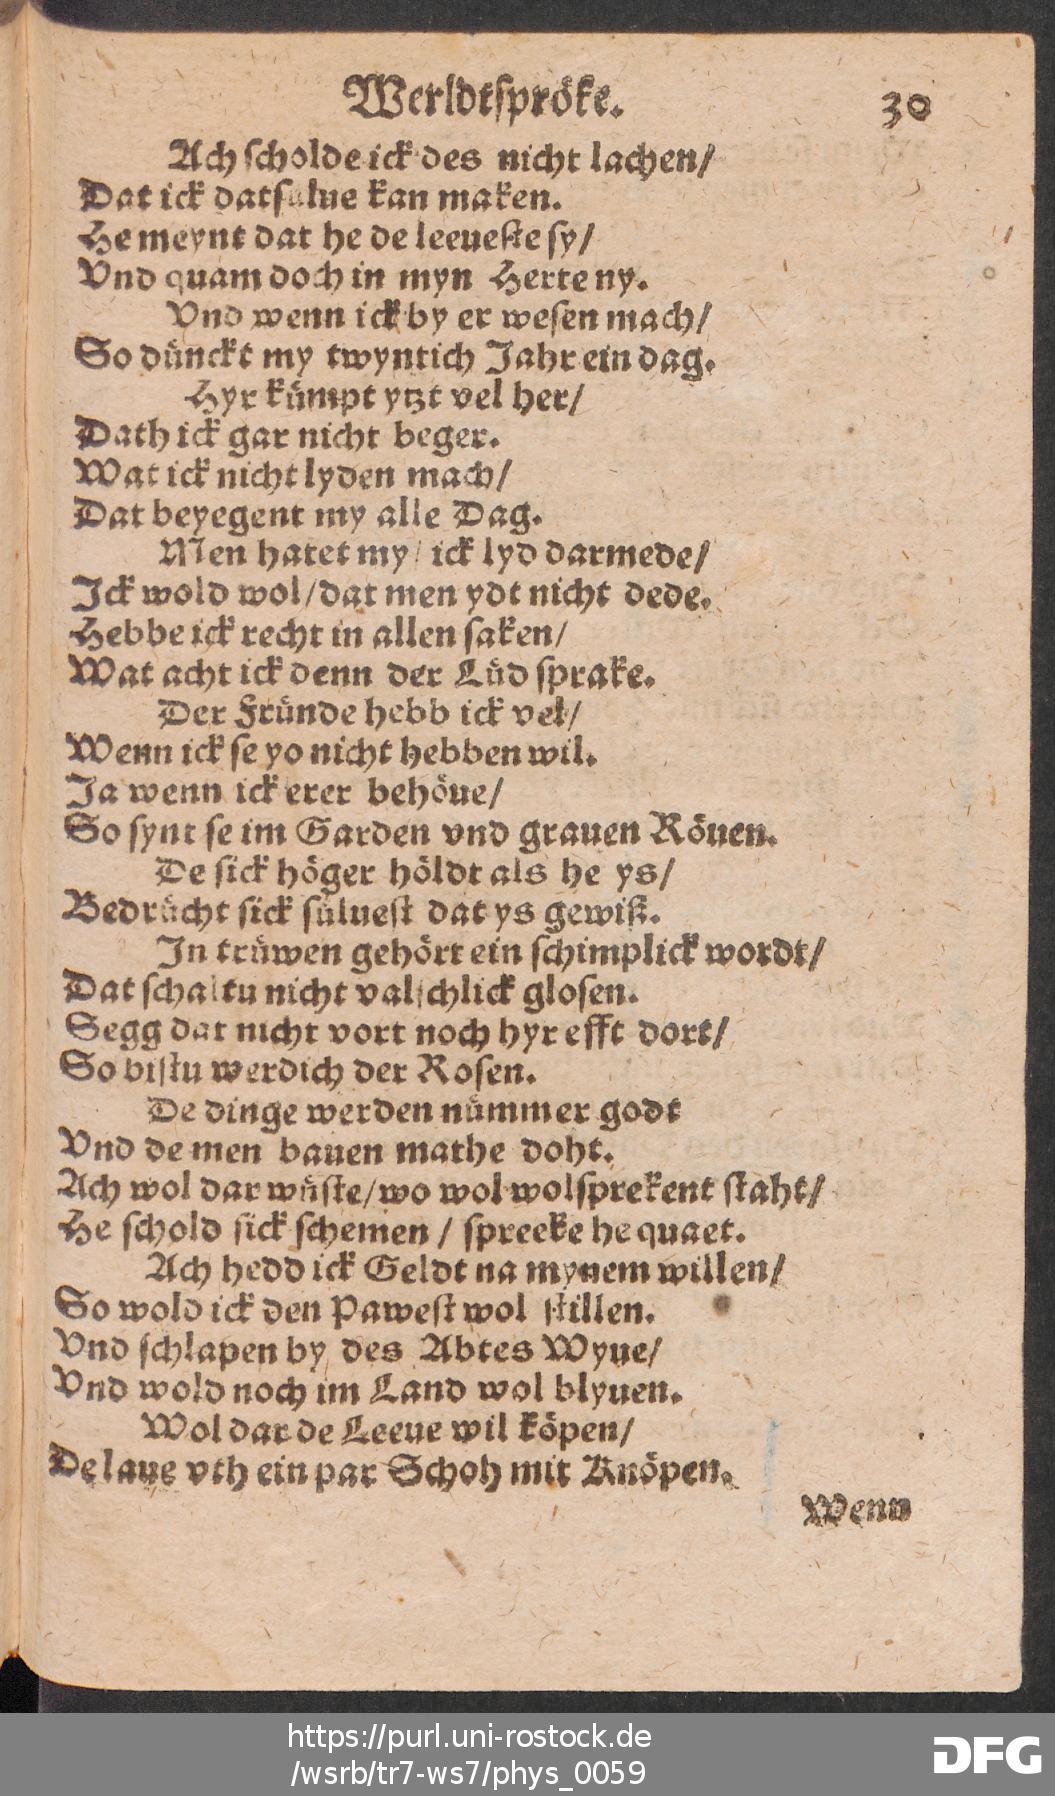 Werldtſpröke.
30
Ach ſcholde ick des nicht lachen/
Dat ick datſülue kan maken.
He meynt dat he de leeueſte ſy/
Vnd quam doch in myn Herte ny.
Vnd wenn ick by er weſen mach/
So dünckt my twyntich Jahr ein dag.
Hyr kümpt ytzt vel her/
Dath ick gar nicht beger.
Wat ick nicht lyden mach/
Dat beyegent my alle Dag.
Men hatet my/ ick lyd darmede/
Ick wold wol/dat men ydt nicht dede.
Hebbe ick recht in allen ſaken/
Wat acht ick denn der Lüd ſprake.
Der Fründe hebb ick vel/
Wenn ick ſe yo nicht hebben wil.
Ja wenn ick erer behöue/
So ſynt ſe im Garden vnd grauen Röuen.
De ſick höger höldt als he ys/
Bedrücht ſick ſülueſt dat ys gewiß.
In trüwen gehört ein ſchimplick wordt/
Dat ſchaltu nicht valſchlick gloſen.
Segg dat nicht vort noch hyr efft dort/
So biſtu werdich der Roſen.
De dinge werden nümmer godt
Vnd de men bauen mathe doht.
Ach wol dar wüſte/wo wol wolſprekent ſtaht/
He ſchold ſick ſchemen / ſpreeke he quaet.
Ach hedd ick Geldt na mynem willen/
So wold ick den Paweſt wol ſtillen.
Vnd ſchlapen by des Abtes Wyue/
Vnd wold noch im Land wol blyuen.
Wol dar de Leeue wil köpen/
De laue vth ein par Schoh mit Knöpen.
Wenn
https://purl.uni-rostock.de
/wsrb/tr7-ws7/phys_0059
DFG